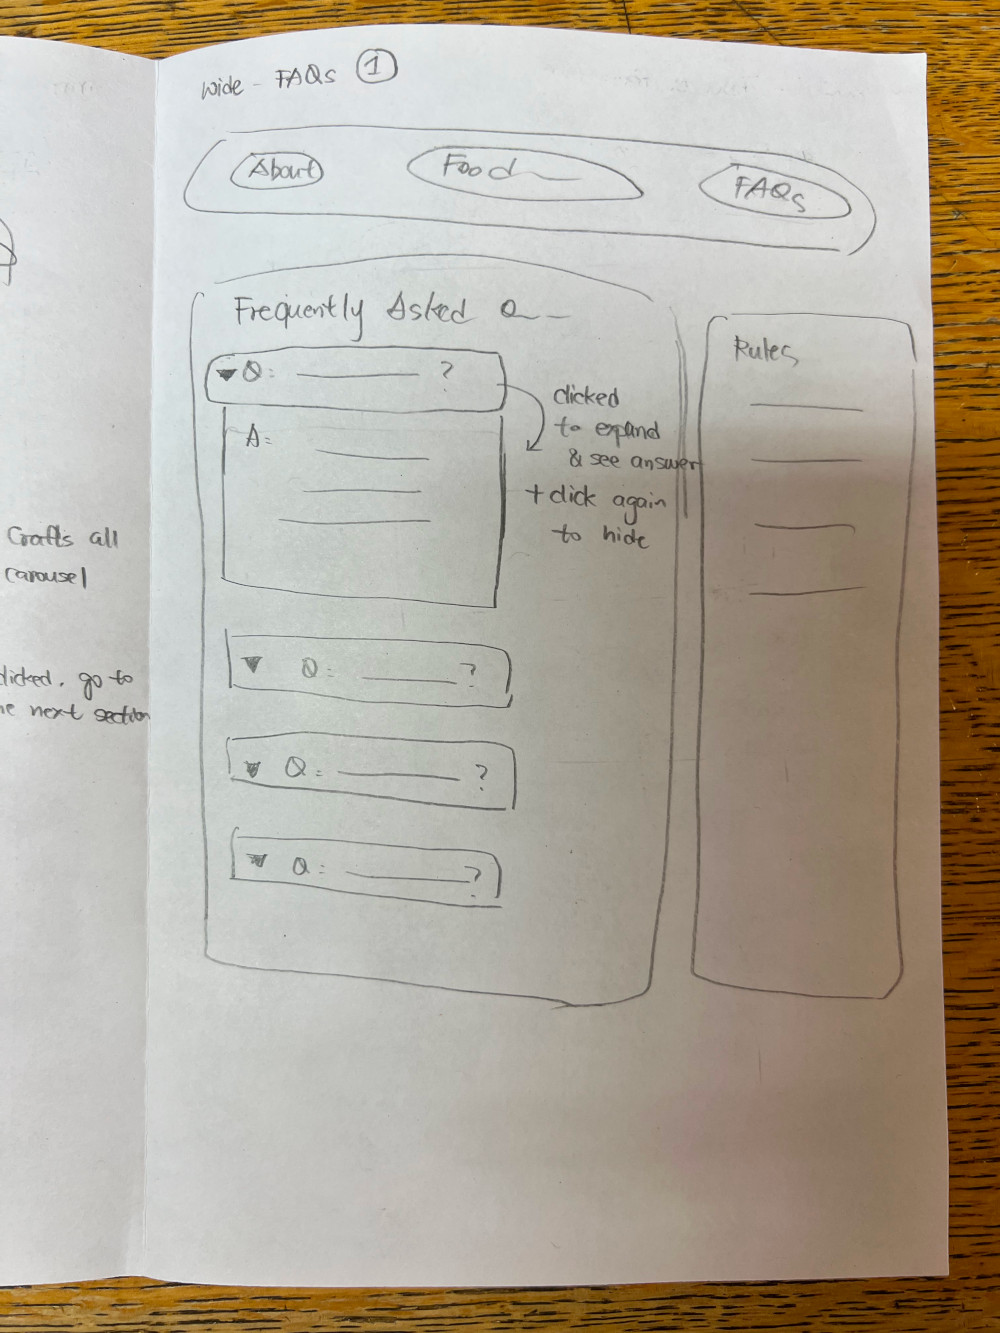 Crafts all
carousel
clicked, go to
next section
wide - FAQs 1
About
Food
FAQs
Frequently Asked Q
Q: ?
A:
clicked
to expand
& see answer
+ click again
to hide
Q: ?
Q: ?
Q: ?
Rules